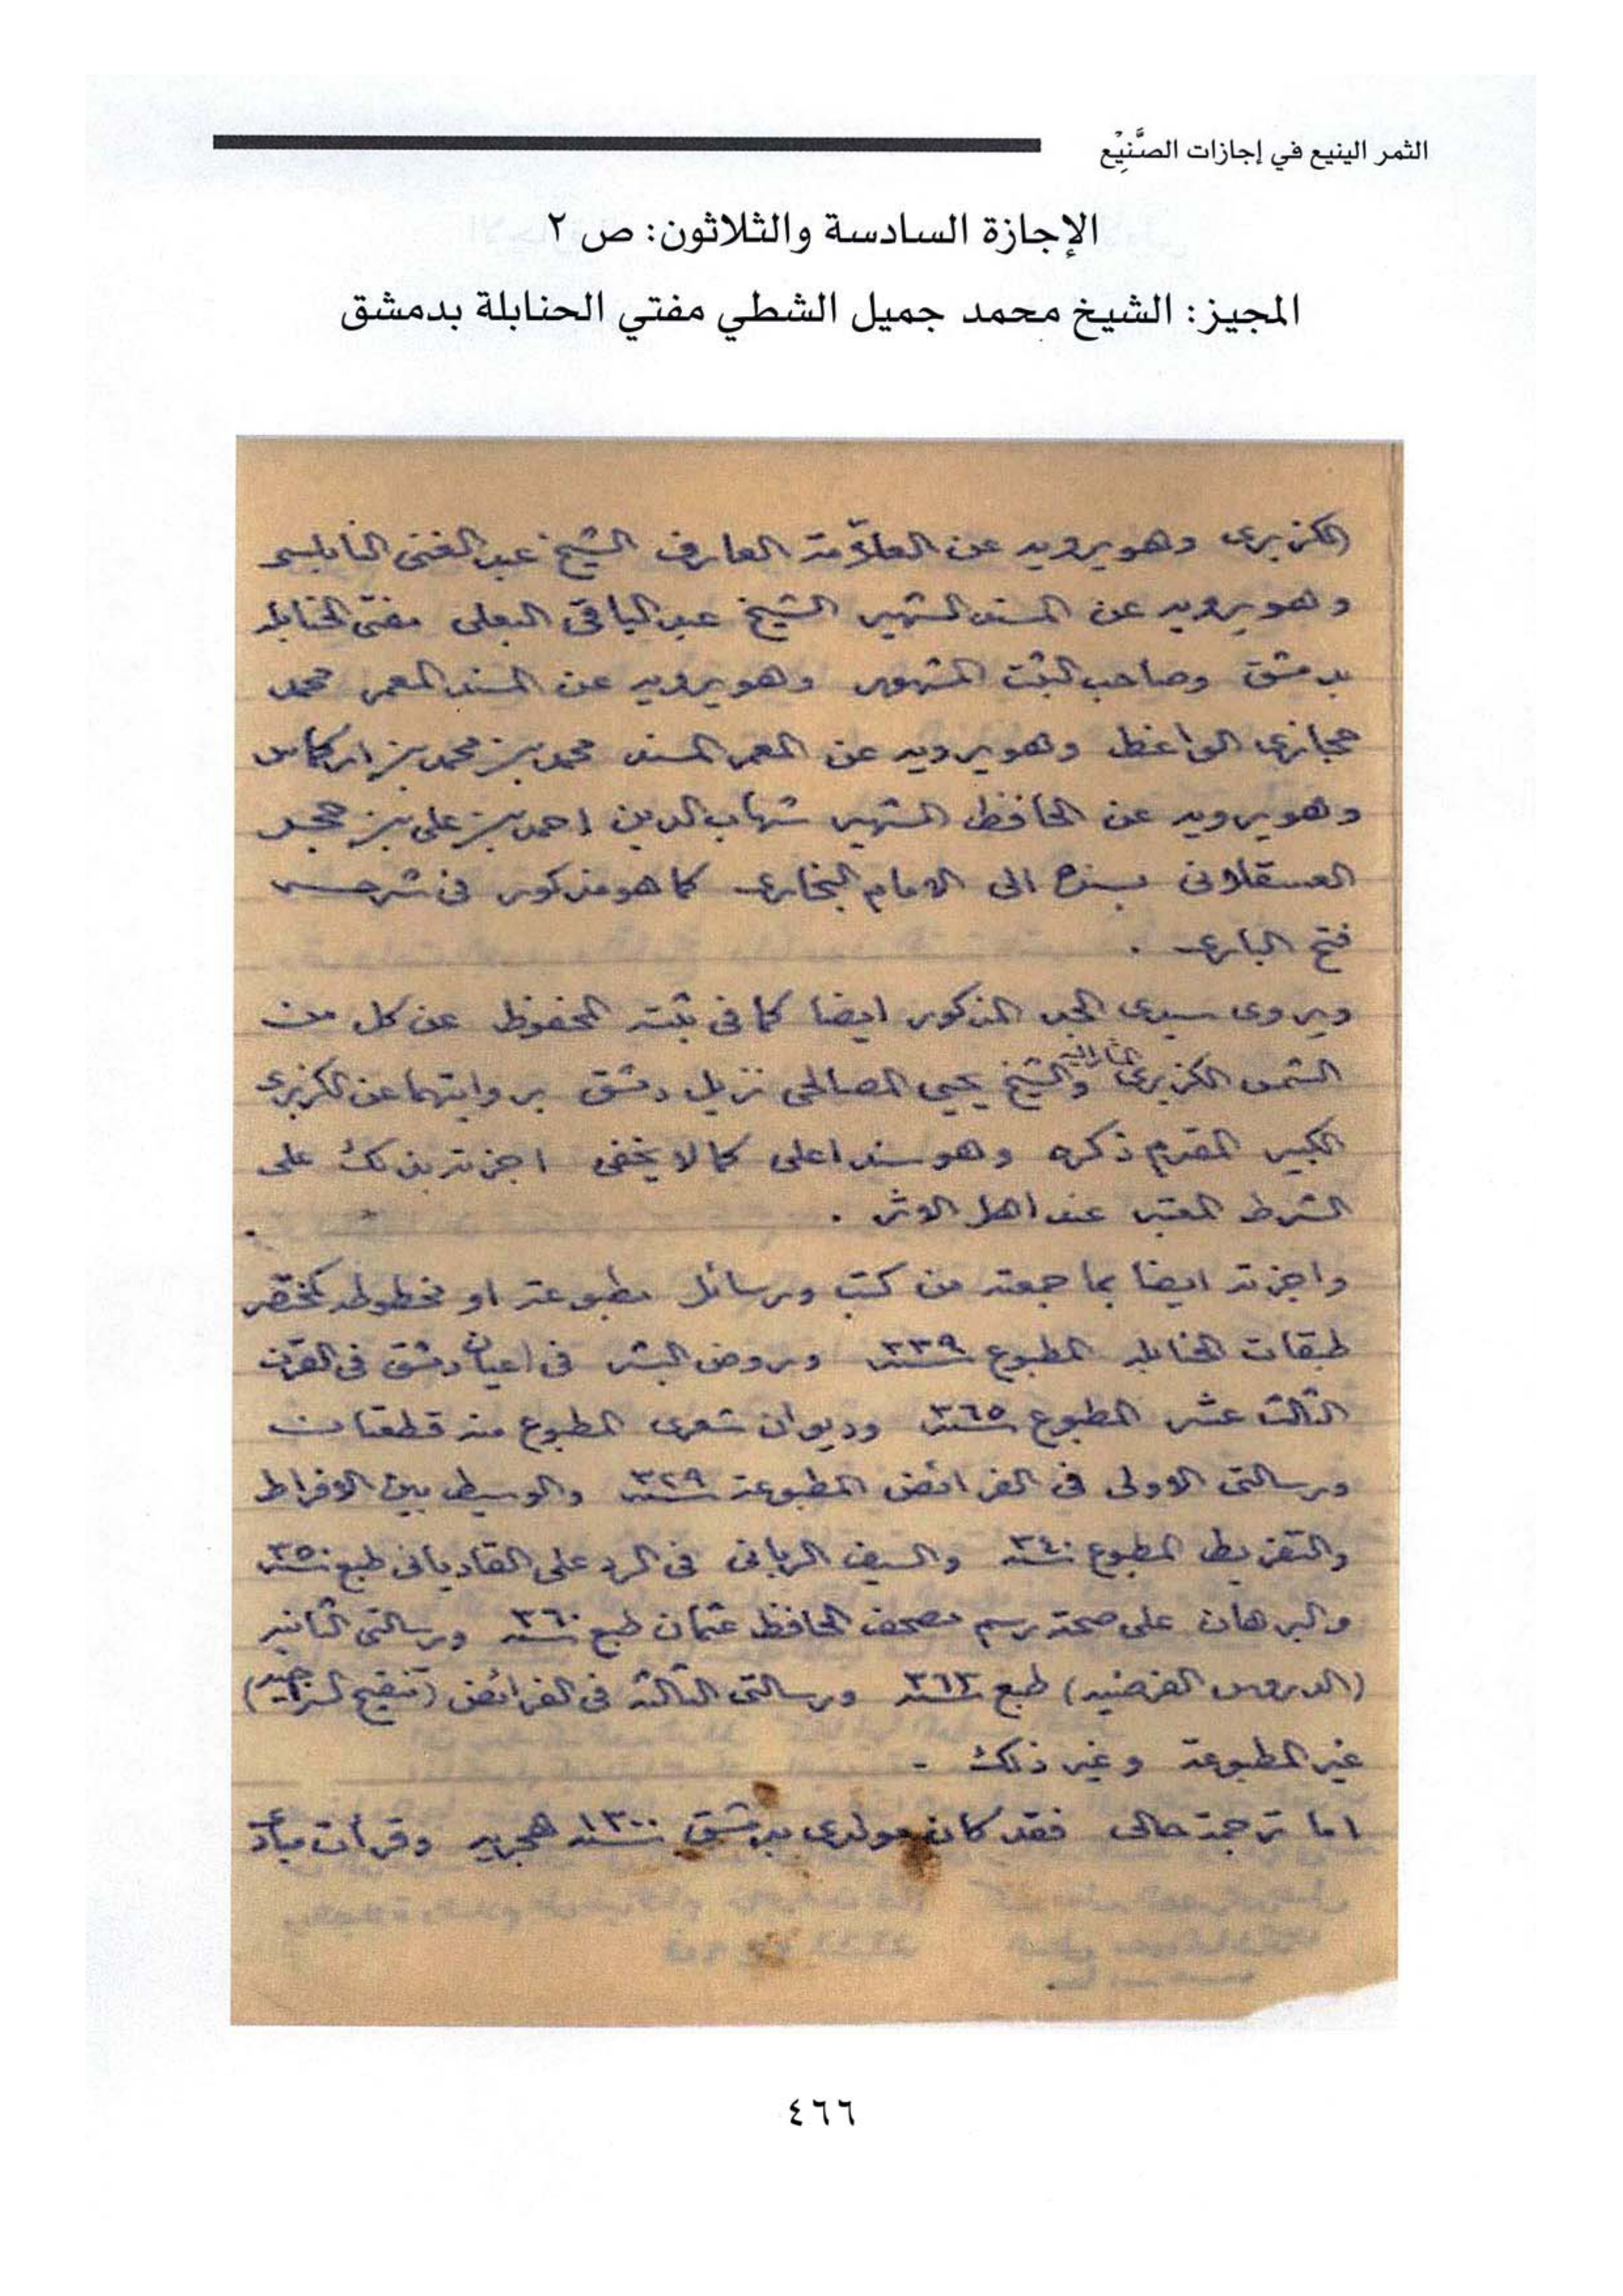 الثمر الينيع في إجازات الصَّنِيْع
الإجازة السادسة والثلاثون: ص ٢
المجيز: الشيخ محمد جميل الشطي مفتي الحنابلة بدمشق
الكزبرى وهو يرويه عن العلّامة العارف الشيخ عبد الغنى النابلسى
وهو يرويه عن المسند الشهير الشيخ عبد الباقى البعلى مفتى الحنابلة
بدمشق وصاحب الثبت المشهور وهو يرويه عن المسند المعمر محمد
حجازى الواعظ وهو يرويه عن المعمر المسند محمد بن محمد بن اركماس
وهو يرويه عن الحافظ الشهير شهاب الدين احمد بن على بن حجر
العسقلانى بسنده الى الامام البخارى كما هو مذكور فى شرحه
فتح البارى .
ويروى سيدى الجد المذكور ايضا كما فى ثبته المحفوظ عن كل من
الشمس الكزبرى والشيخ يحيى المصالحى نزيل دمشق بروايتهما عن الكزبرى
الكبير المقدم ذكره وهو سند اعلى كما لا يخفى اجزته بذلك على
الشرط المعتبر عند اهل الاثر .
واجزته ايضا بما جمعته من كتب ورسائل مطبوعة او مخطوطة كمختصر
طبقات الحنابلة المطبوع سنة ٣٣٩ وروض البشر فى اعيان دمشق فى القرن
الثالث عشر المطبوع سنة ٣٦٥ وديوان شعرى المطبوع منه قطعتان
ورسالتى الاولى فى الفرائض المطبوعة سنة ٣٢٩ والوسيط بين الافراط
والتفريط المطبوع سنة ٣٤٠ والسيف الربانى فى الرد على القاديانى طبع سنة ٣٥٠
والبرهان على صحة رسم مصحف الحافظ عثمان طبع سنة ٣٦٠ ورسالتى الثانية
(الدروس الفرضية) طبع سنة ٣٦٣ ورسالتى الثالثة فى الفرائض (تنقيح السراجية)
غير المطبوعة وغير ذلك .
اما ترجمة حالى فقد كان مولدى بدمشق سنة ١٣٠٠ هجرية وقرأت مبادئ
٤٦٦